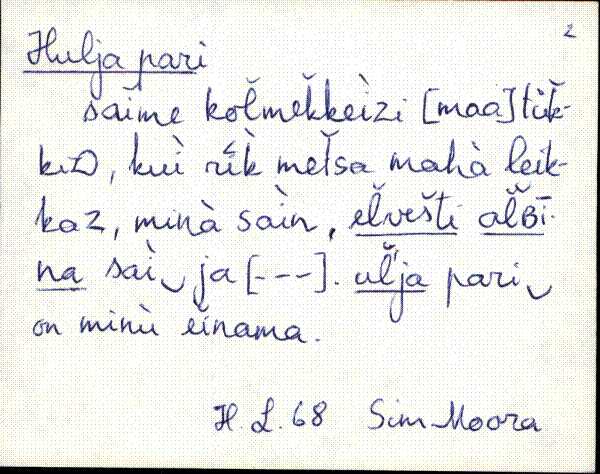 2
Hulja pari
saĭme kolmekkeìzi [maa]tük-
kiD, kuì rík metsa mahà leik-
kaz, minà saìn, elvešti alBī-
na saì ja [---]. ulja pari
on minù eĭnama.
H. L. 68 Sim. Moora